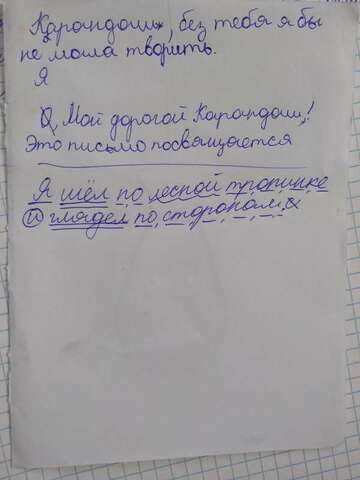 Карандаш, без тебя я бы
не могла творить.
Я
О, Мой дорогой Карандаш!
Это письмо посвящается
Я шёл по лесной тропинке
и глядел по сторонам.